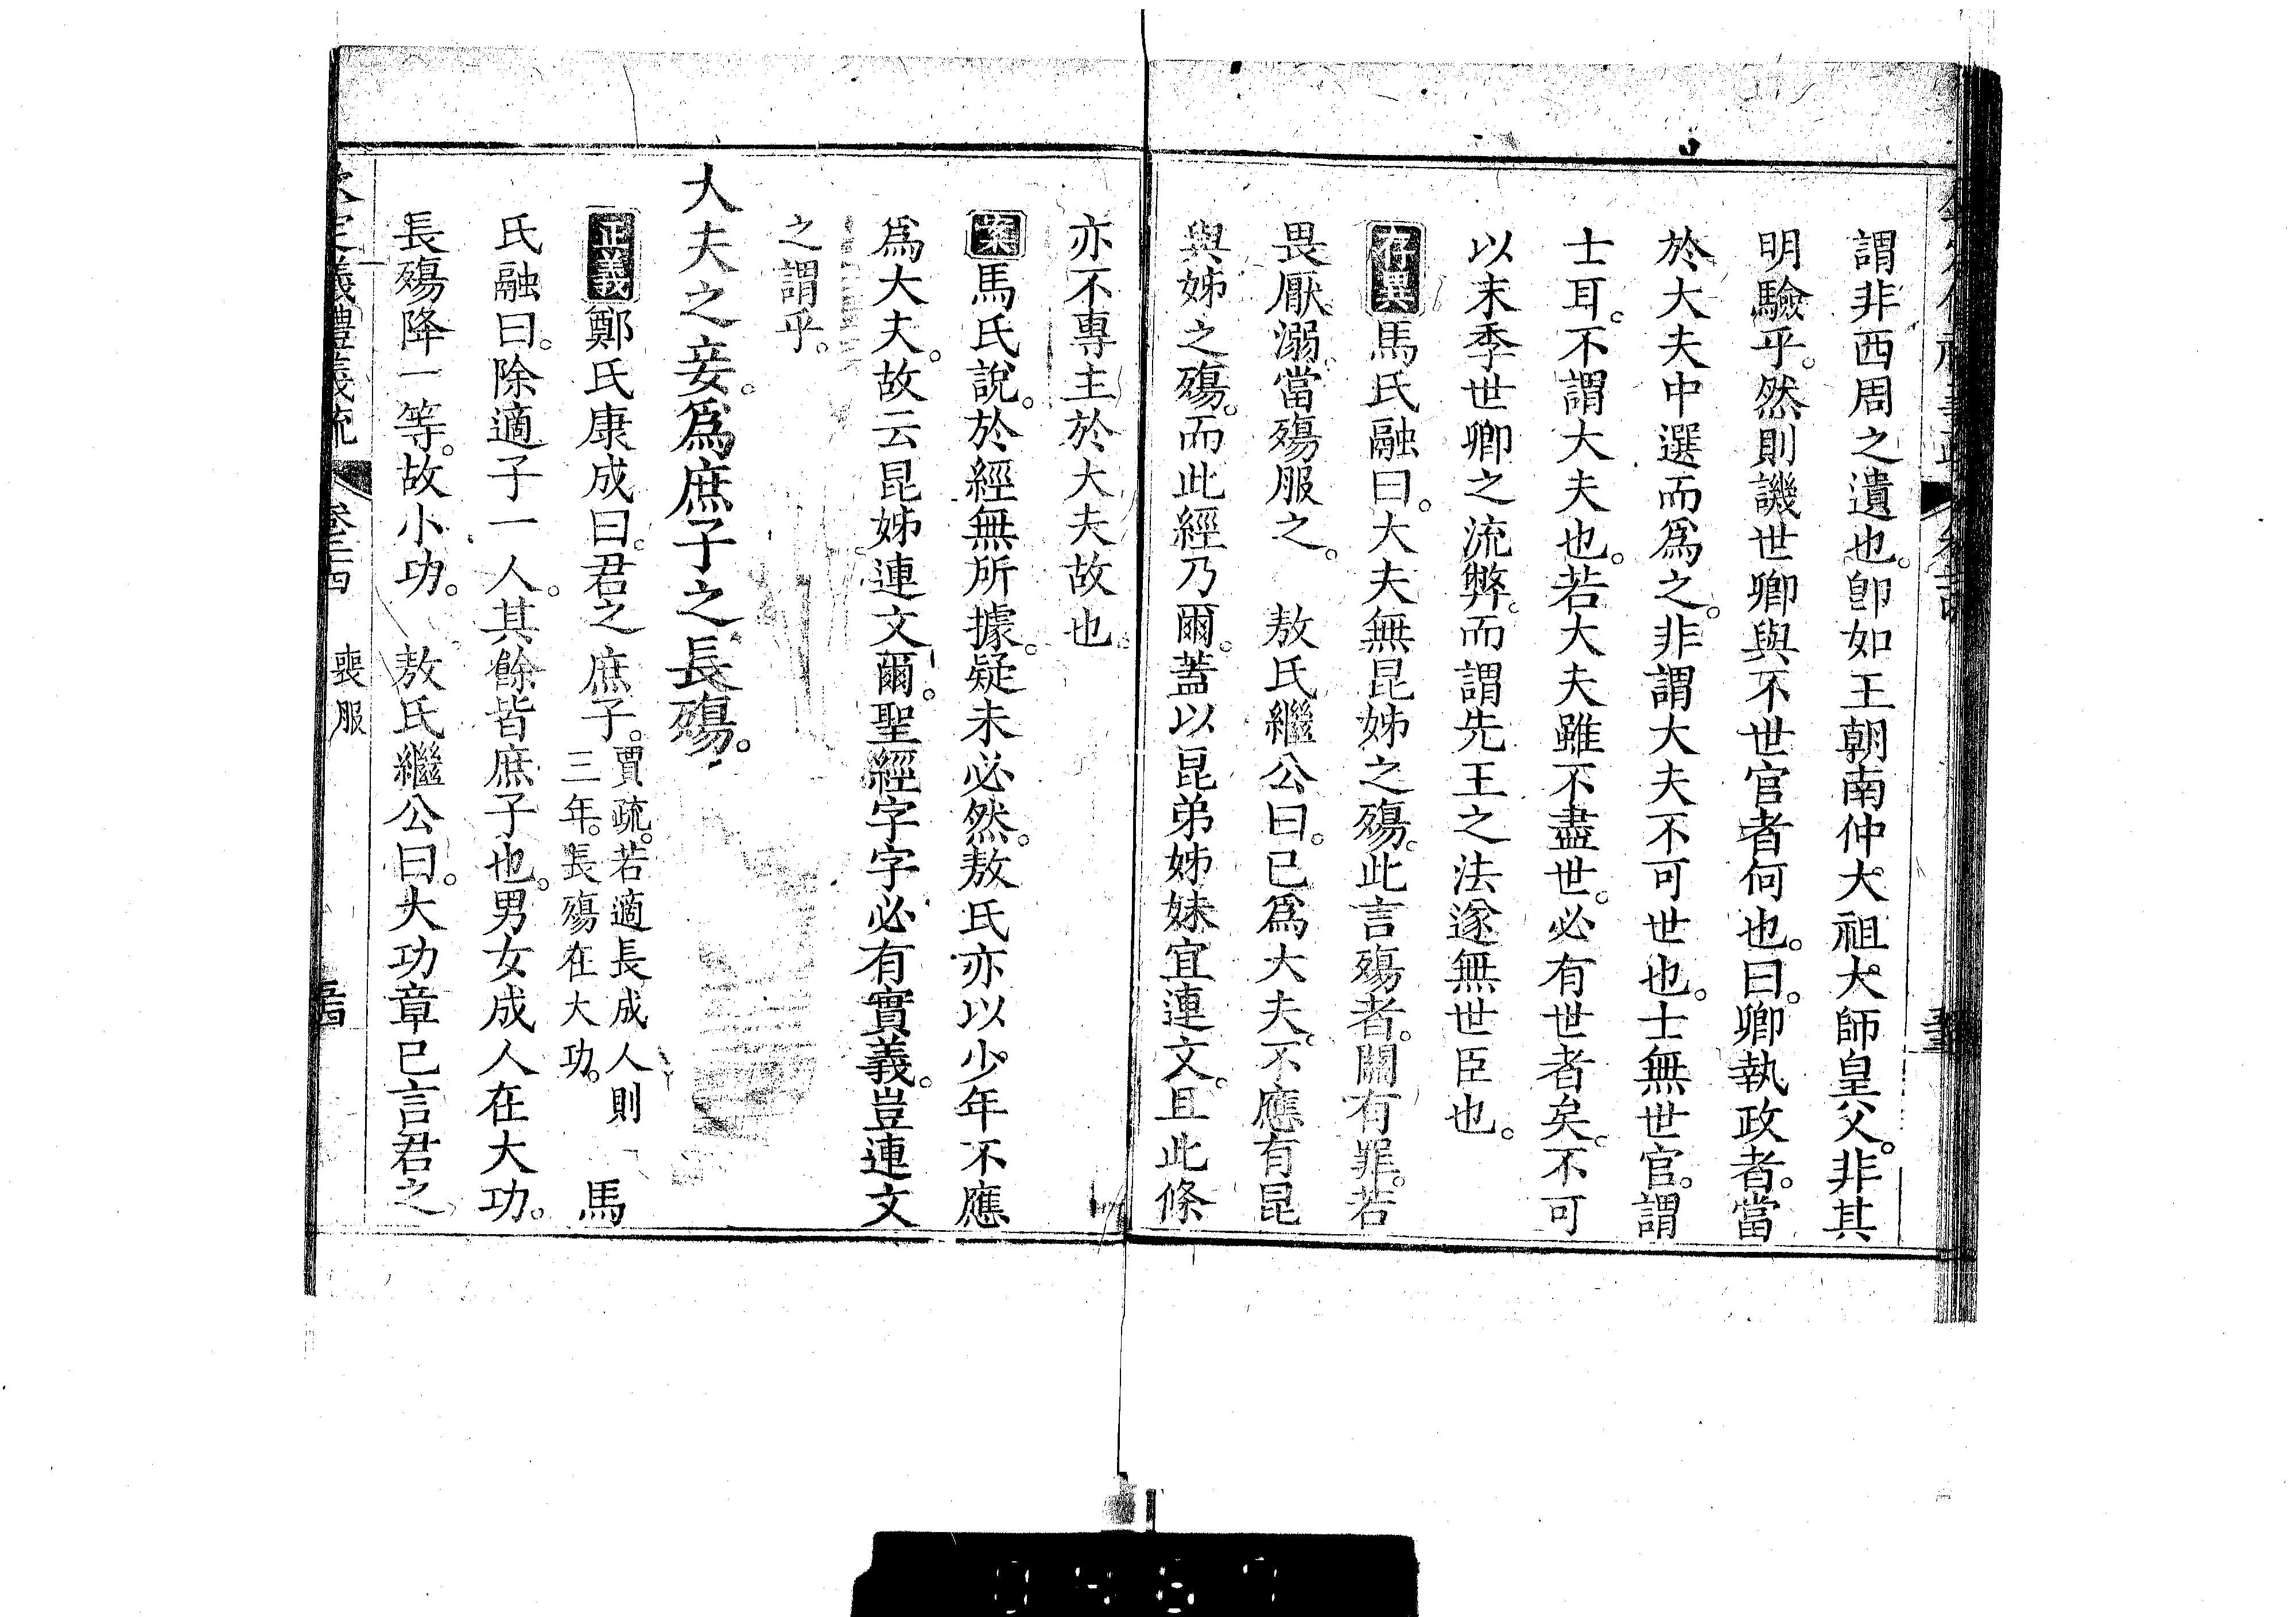 謂非西周之遺也。卽如王朝南仲大祖。大師皇父。非其
明驗乎。然則譏世卿與不世官者何也。曰。卿執政者。當
於大夫中選而爲之。非謂大夫不可世也。士無世官。謂
士耳。不謂大夫也。若大夫雖不盡世。必有世者矣。不可
以末季世卿之流弊。而謂先王之法遂無世臣也。
存異馬氏融曰。大夫無昆姊之殤。此言殤者。關有罪。若
畏厭溺。當殤服之。　敖氏繼公曰。已爲大夫。不應有昆
與姊之殤。而此經乃爾。蓋以昆弟姊妹宜連文。且此條
亦不專主於大夫故也。
案馬氏說。於經無所據。疑未必然。敖氏亦以少年不應
爲大夫。故云昆姊連文爾。聖經字字必有實義。豈連文
之謂乎。
大夫之妾。爲庶子之長殤。
正義鄭氏康成曰。君之庶子。賈疏。若適長成人則三年。長殤在大功。　馬
氏融曰。除適子一人。其餘皆庶子也。男女成人在大功。
長殤降一等。故小功。　敖氏繼公曰。大功章已言君之
欽定儀禮義疏　卷二四　喪服